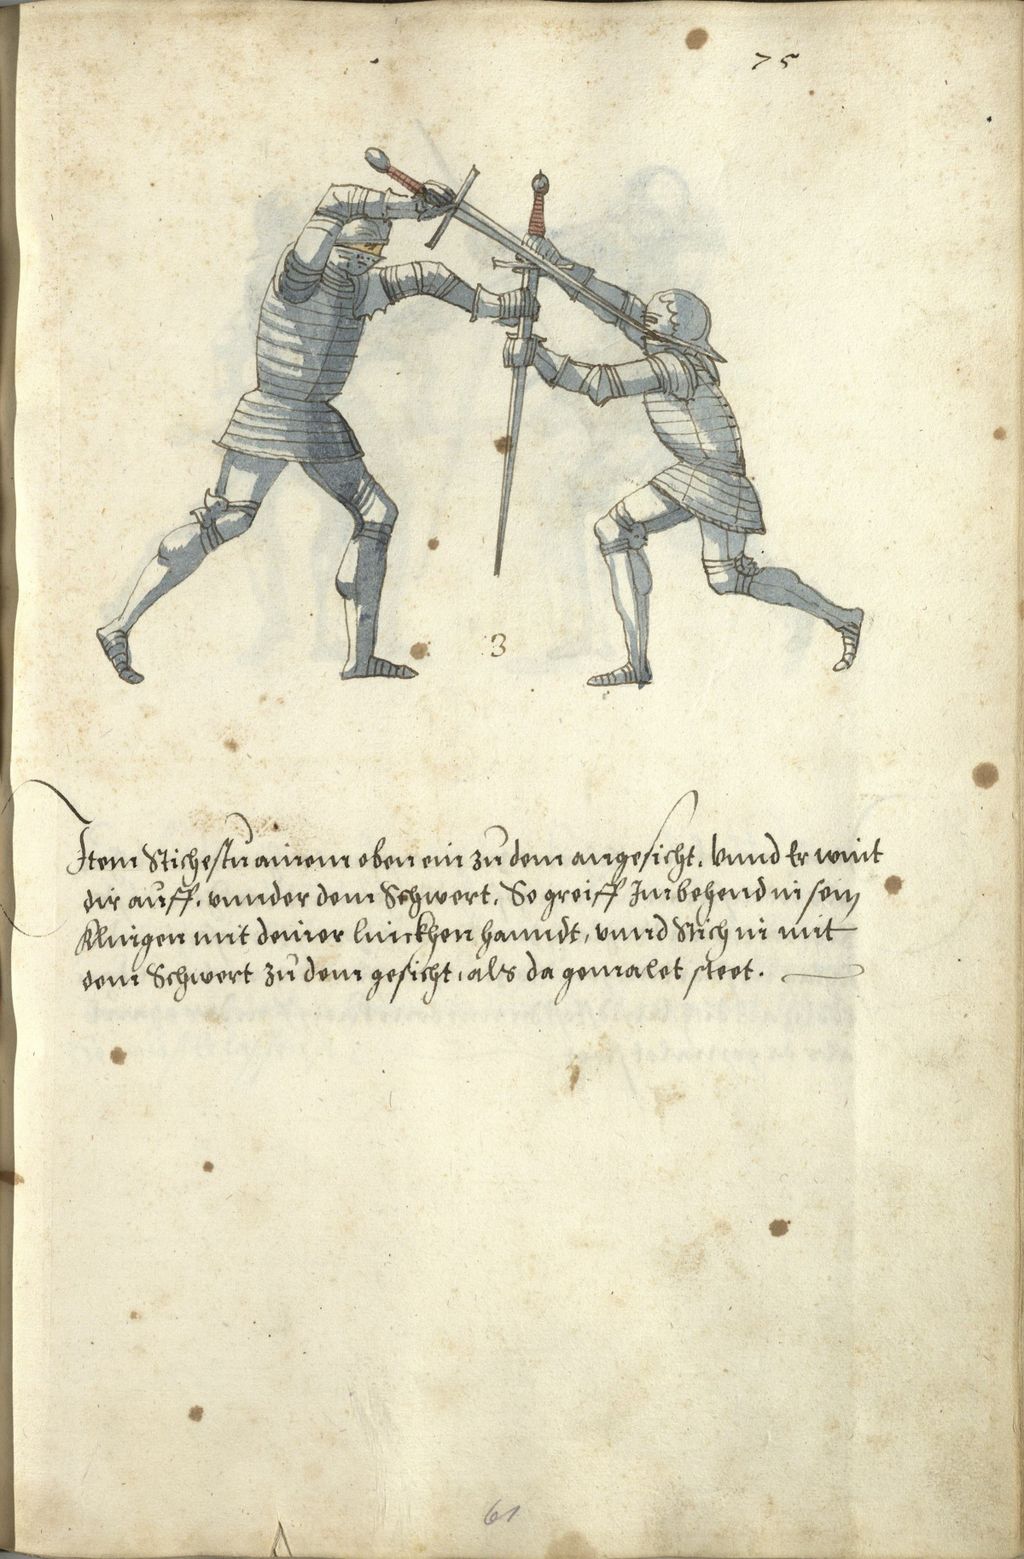 75
3
Item Stichestu ainem eben ein zu dem angesicht, vnnd Er wint
dir auff, vnnder dem Schwert, So greiff Im behend in sein
Klingen mit deiner linckhen hanndt, vnnd Stich in mit
dem Schwert zu dem gesicht, als da gemalet steet.
61